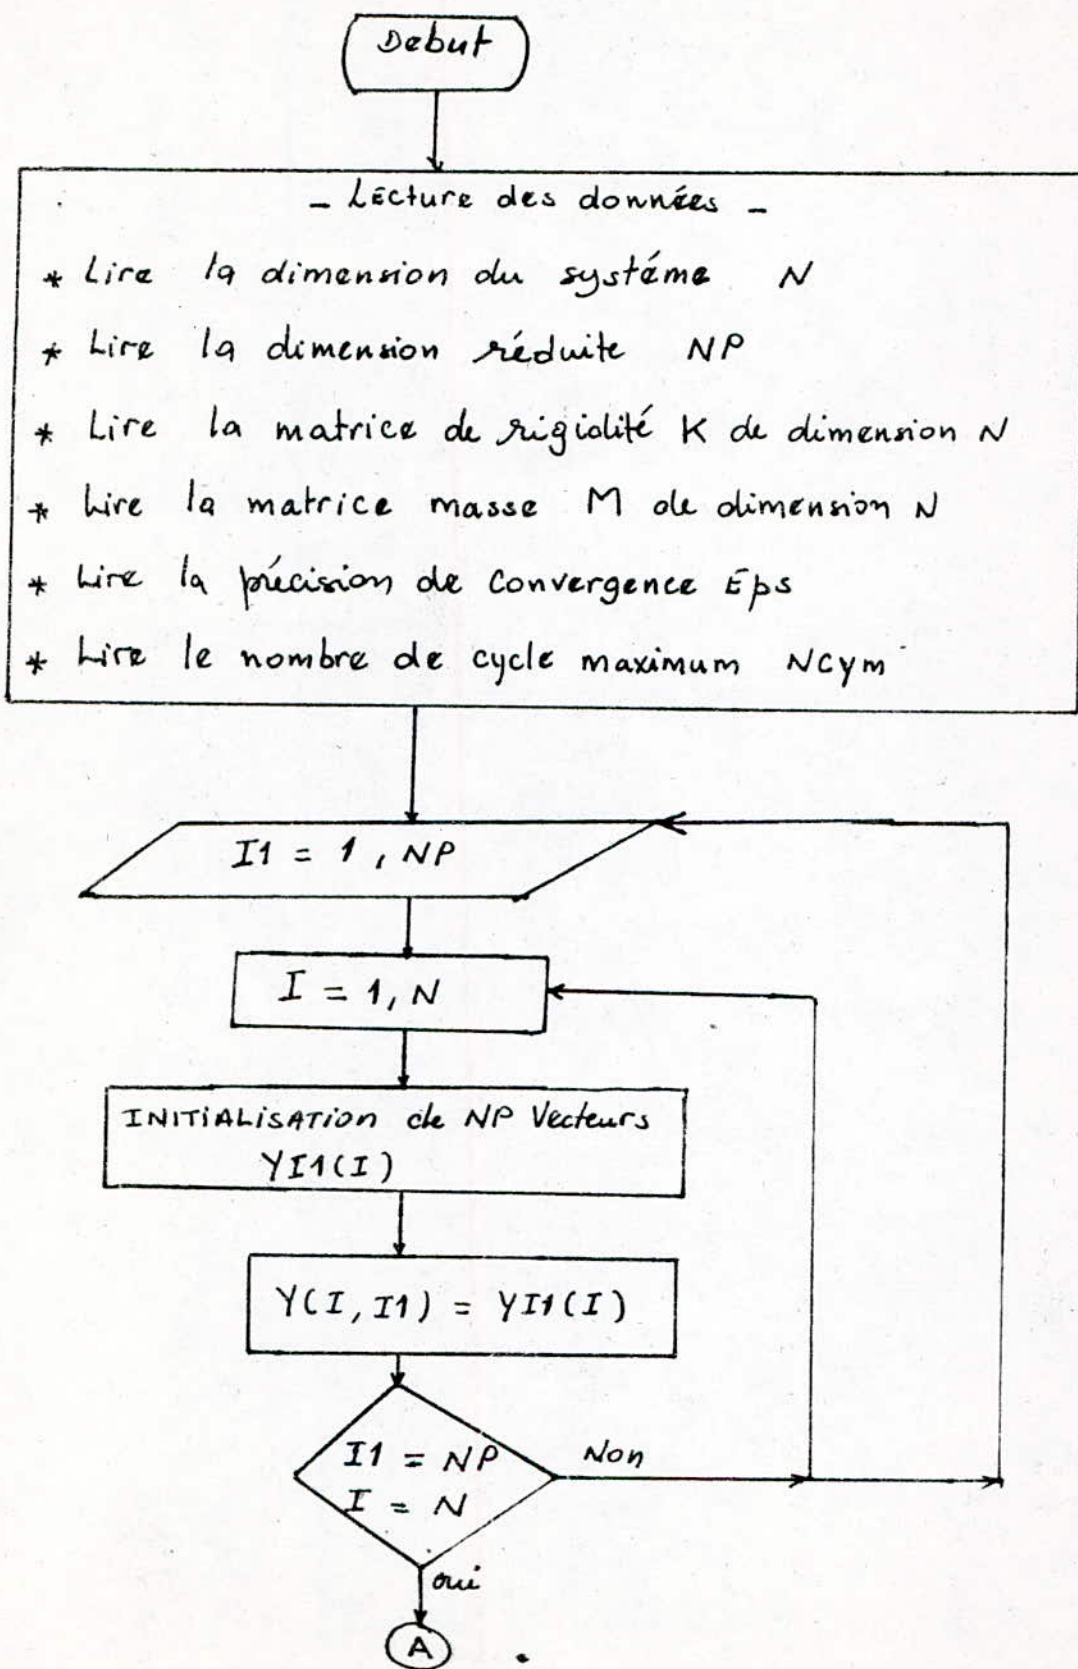 Debut
- Lecture des données -
* Lire la dimension du systéme N
* Lire la dimension réduite NP
* Lire la matrice de rigidité K de dimension N
* Lire la matrice masse M de dimension N
* Lire la précision de convergence Eps
* Lire le nombre de cycle maximum NCym
I1 = 1, NP
I = 1, N
INITIALISATION de NP Vecteurs
YI1(I)
Y(I, I1) = YI1(I)
I1 = NP
I = N
Non
oui
A